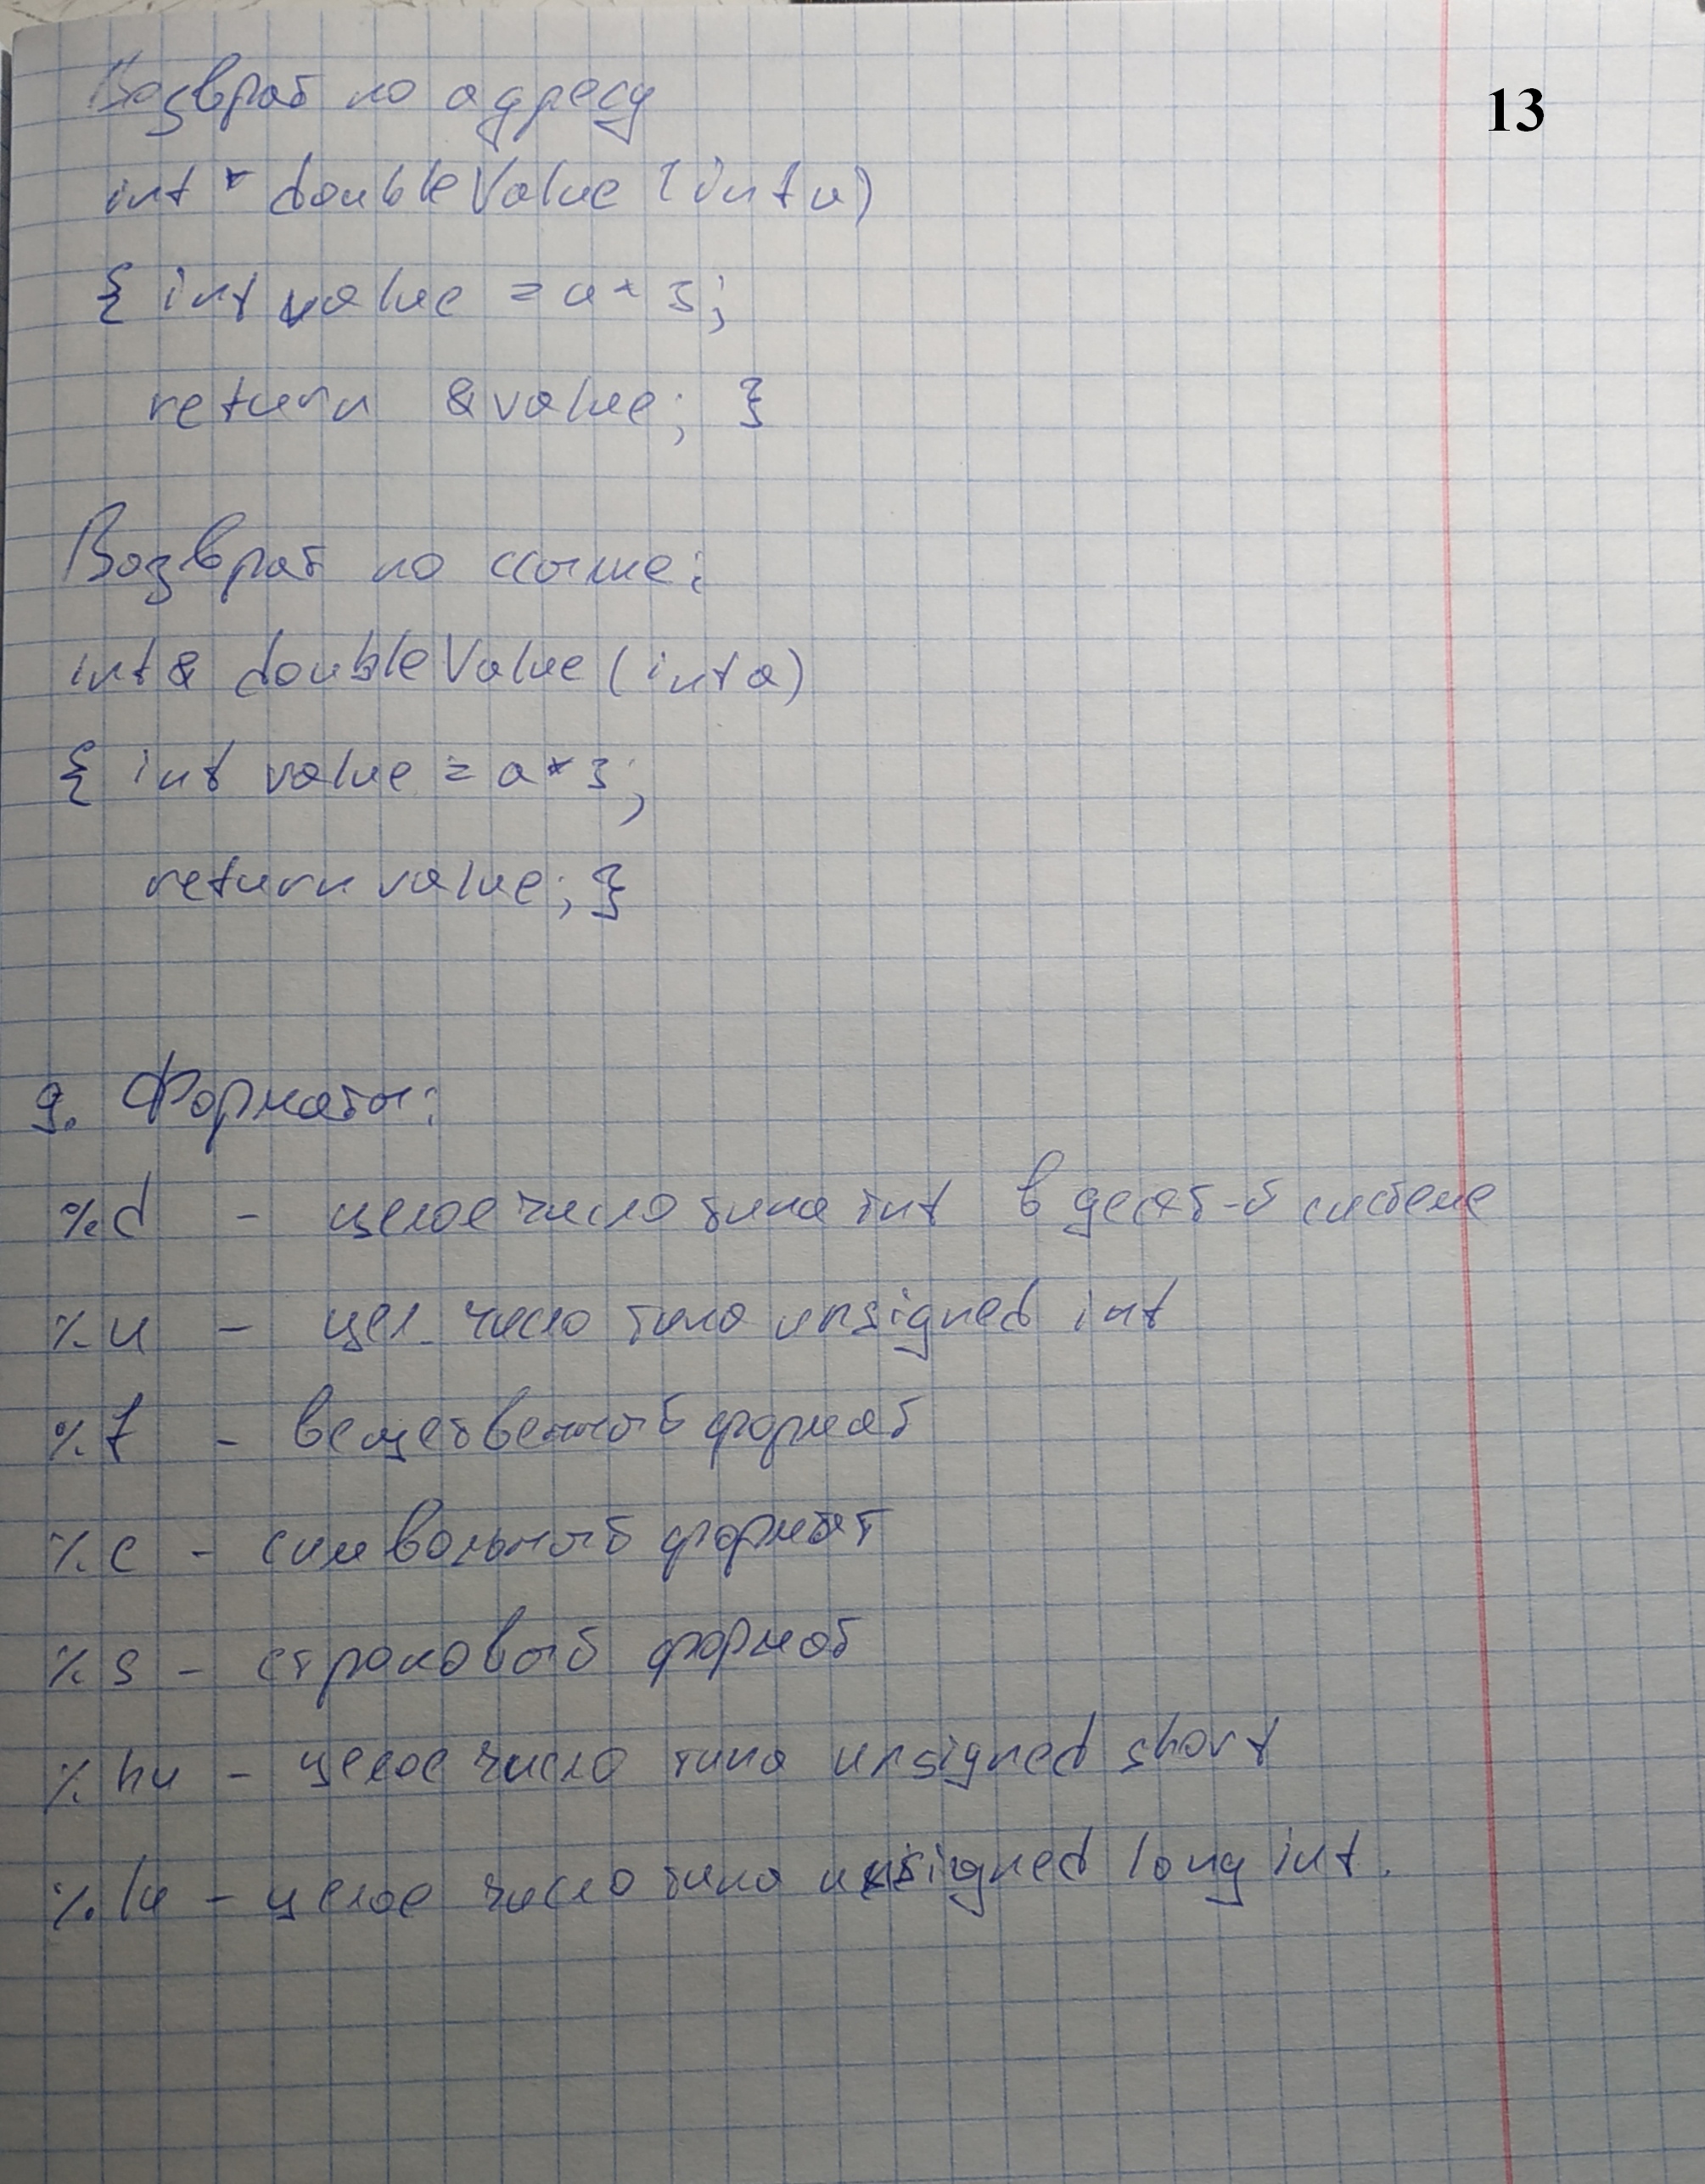 Возврат по адресу
13
int * doubleValue (int a)
{ int value = a * 3;
return &value; }
Возврат по ссылке:
int& doubleValue (int a)
{ int value = a * 3;
return value; }
9. Форматы:
%d - целое число типа int в десят-й системе
%u - цел. число типа unsigned int
%f - вещественный формат
%c - символьный формат
%s - строковый формат
%hu - целое число типа unsigned short
%lu - целое число типа unsigned long int.